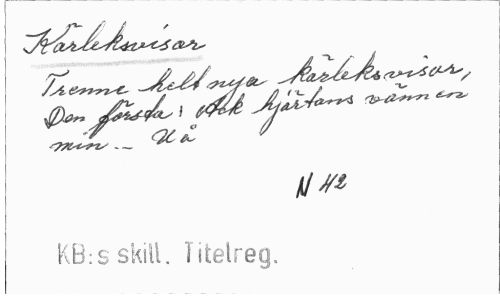 Kärleksvisor
Trenne helt nya kärleksvisor,
Den första: Ack hjärtans vännen
min -- U å
N 42
KB:s skill. Titelreg.